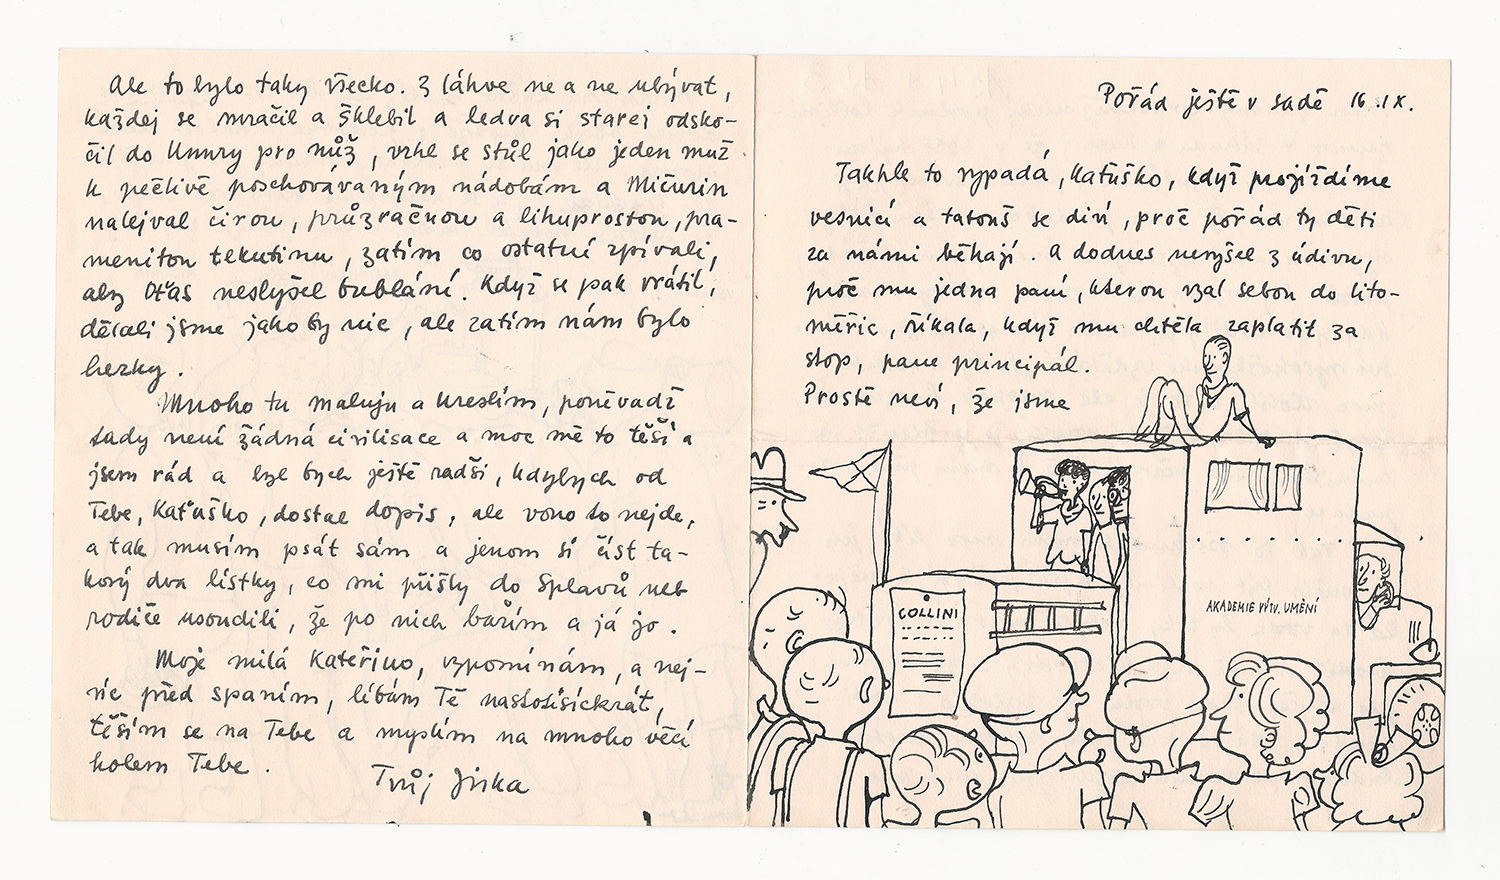 Ale to bylo taky všecko. Z láhve ne a ne ubývat,
každej se mračil a šklebil a ledva si starej odsko-
čil do Umury pro nůž, vrhl se stůl jako jeden muž
k pečlivě poschovávaným nádobám a Mičurin
nalejval čirou, průzračnou a lihuprostou, pra-
menitou tekutinu, zatím co ostatní zpívali,
aby Oťas neslyšel bublání. Když se pak vrátil,
dělali jsme jakoby nic, ale zatím nám bylo
hezky.
Mnoho tu maluju a kreslím, poněvadž
tady není žádná civilisace a moc mě to těší a
jsem rád a byl bych ještě radši, kdybych od
Tebe, Kaťuško, dostal dopis, ale vono to nejde,
a tak musím psát sám a jenom si číst ta-
kový dva lístky, co mi přišly do Splavů neb
rodiče usoudili, že po nich bažím a já jo.
Moje milá Kateřino, vzpomínám, a nej-
víc před spaním, líbám Tě nastotisíckrát,
těším se na Tebe a myslím na mnoho věcí
kolem Tebe.
Tvůj Jirka
Pořád ještě v sadě 16.IX.
Takhle to vypadá, Kaťuško, když projíždíme
vesnicí a tatouš se diví, proč pořád ty děti
za námi běhají. A dodnes nevyšel z údivu,
proč mu jedna paní, kterou vzal sebou do Lito-
měřic, říkala, když mu chtěla zaplatit za
stop, pane principál.
Prostě neví, že jsme
COLLINI
AKADEMIE VÝTV. UMĚNÍ